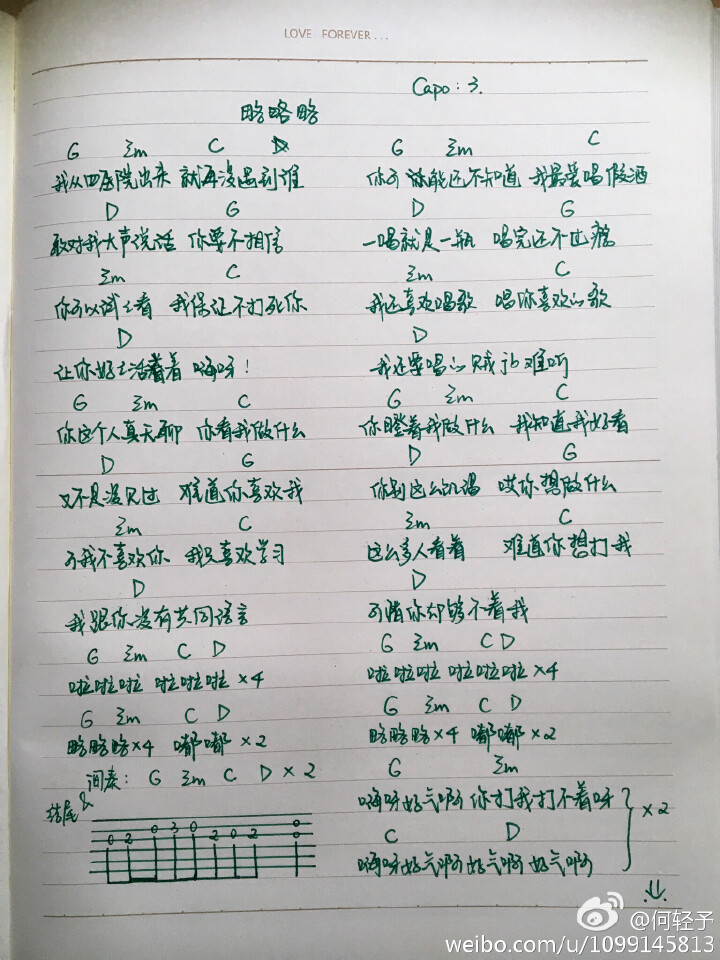 LOVE FOREVER...
Capo：3.
略略略
G Em C D
我从四医院出来 就再没遇到谁
D G
敢对我大声说话 你要不相信
Em C
你可以试试看 我保证不打死你
D
让你好好活着 嗨呀！
G Em C
你这个人真无聊 你看我做什么
D G
又不是没见过 难道你喜欢我
Em C
可我不喜欢你 我只喜欢学习
D
我跟你没有共同语言
G Em C D
啦啦啦啦 啦啦啦啦 ×4
G Em C D
略略略×4 嘟嘟 ×2
间奏： G Em C D ×2
结尾&
0 2 0 3 0 2 0 2 0 0
G Em C
你可能还不知道 我最爱唱假酒
D G
一唱就是一瓶 唱完还不过瘾
Em C
我还喜欢唱歌 唱你喜欢的歌
D
我还要唱的贼难听
G Em C
你瞪着我做什么 我知道我好看
D G
你别这么饥渴 哎你想做什么
Em C
这么多人看着 难道你想打我
D
可惜你却够不着我
G Em C D
啦啦啦啦 啦啦啦啦 ×4
G Em C D
略略略×4 嘟嘟 ×2
G Em
嗨呀好气啊 你打我打不着呀
C D
嗨呀好气啊好气啊 好气啊
×2
@何轻子
weibo.com/u/1099145813